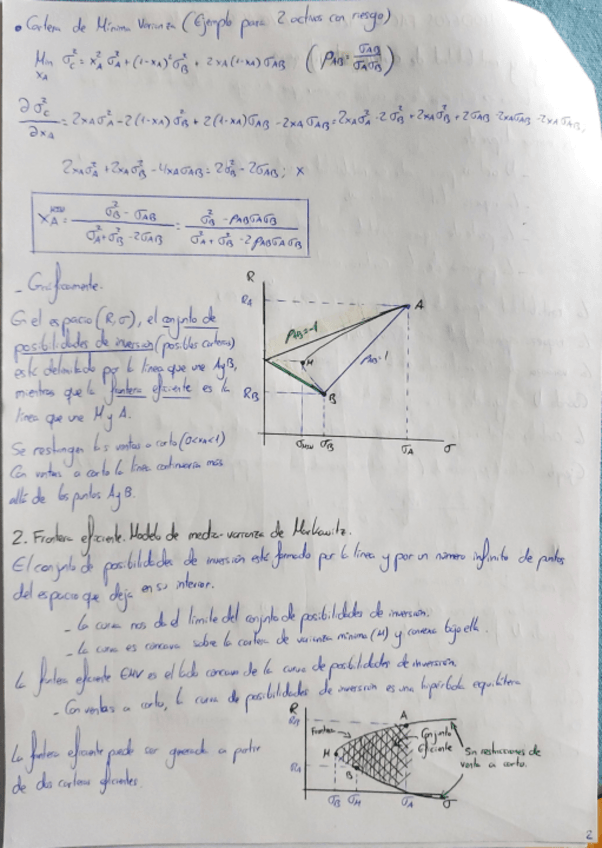 • Cartera de Mínima Varianza (Ejemplo para 2 activos con riesgo)
Min σ²c = x²A σ²A + (1-xA)² σ²B + 2xA(1-xA) σAB (ρAB = σAB / σAσB)
xA
∂σ²c / ∂xA = 2xAσ²A - 2(1-xA)σ²B + 2(1-xA)σAB - 2xAσAB = 2xAσ²A - 2σ²B + 2xAσ²B + 2σAB - 2xAσAB - 2xAσAB;
2xAσ²A + 2xAσ²B - 4xAσAB = 2σ²B - 2σAB; x
xA = (σ²B - σAB) / (σ²A + σ²B - 2σAB) = (σ²B - ρABσAσB) / (σ²A + σ²B - 2ρABσAσB)
- Gráficamente.
En el espacio (R,σ), el conjunto de
posibilidades de inversión (posibles carteras)
está delimitado por la línea que une A y B,
mientras que la frontera eficiente es la
línea que une M y A.
Se restringen las ventas a corto
Con ventas a corto la línea continuaría más
allá de los puntos A y B.
R
RA
A
ρAB=-1
M
ρAB=1
RB
B
σMIN
σB
σA
σ
2. Frontera eficiente. Modelo de media-varianza de Markowitz.
El conjunto de posibilidades de inversión está formado por la línea y por un número infinito de puntos
del espacio que deja en su interior.
- La curva nos da el límite del conjunto de posibilidades de inversión.
- La curva es cóncava sobre la cartera de varianza mínima (M) y convexa bajo ella.
La frontera eficiente EMV es el lado cóncavo de la curva de posibilidades de inversión.
- Con ventas a corto, la curva de posibilidades de inversión es una hipérbola equilátera
La frontera eficiente puede ser generada a partir
de dos carteras eficientes.
R
A
Frontera
Conjunto
Eficiente
M
B
Sin restricciones de
venta a corto.
σB
σM
σA
σ
2